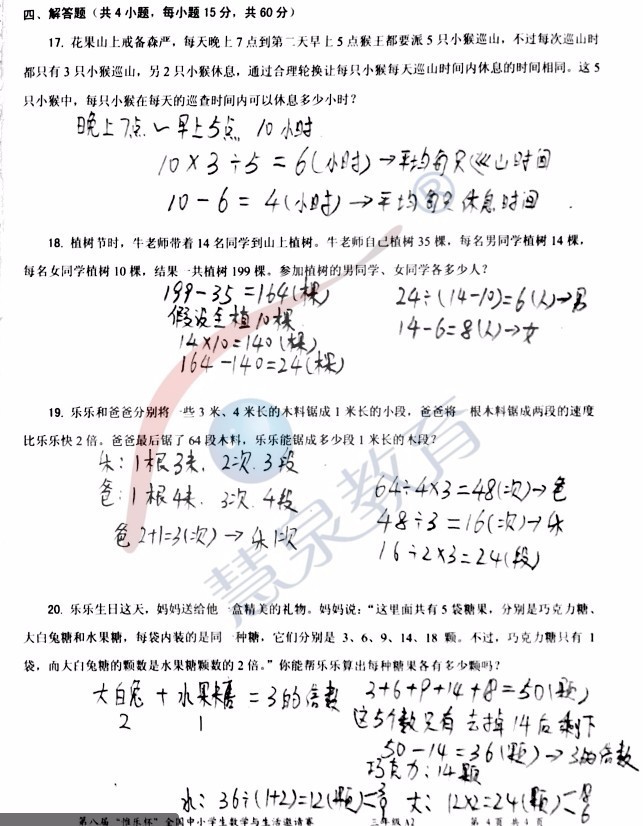 四、解答题（共 4 小题，每小题 15 分，共 60 分）
17. 花果山上戒备森严，每天晚上 7 点到第二天早上 5 点猴王都要派 5 只小猴巡山，不过每次巡山时
都只有 3 只小猴巡山，另 2 只小猴休息，通过合理轮换让每只小猴每天巡山时间内休息的时间相同。这 5
只小猴中，每只小猴在每天的巡查时间内可以休息多少小时？
晚上7点 ~ 早上5点 10小时
10×3÷5=6(小时)→平均每只巡山时间
10-6=4(小时)→平均每只休息时间
18. 植树节时，牛老师带着 14 名同学到山上植树。牛老师自己植树 35 棵，每名男同学植树 14 棵，
每名女同学植树 10 棵，结果一共植树 199 棵。参加植树的男同学、女同学各多少人？
199-35=164(棵)
假设全植10棵
14×10=140(棵)
164-140=24(棵)
24÷(14-10)=6(人)→男
14-6=8(人)→女
19. 乐乐和爸爸分别将一些 3 米、4 米长的木料锯成 1 米长的小段，爸爸将一根木料锯成两段的速度
比乐乐快 2 倍。爸爸最后锯了 64 段木料，乐乐能锯成多少段 1 米长的木段？
乐：1根3米．2次．3段
爸：1根4米．3次．4段
爸 2+1=3(次)→乐1次
64÷4×3=48(次)→爸
48÷3=16(次)→乐
16÷2×3=24(段)
慧泉教育
®
20. 乐乐生日这天，妈妈送给他一盒精美的礼物。妈妈说：“这里面共有 5 袋糖果，分别是巧克力糖、
大白兔糖和水果糖，每袋内装的是同一种糖，它们分别是 3、6、9、14、18 颗。不过，巧克力糖只有 1
袋，而大白兔糖的颗数是水果糖颗数的 2 倍。”你能帮乐乐算出每种糖果各有多少颗吗？
大白兔 + 水果糖 = 3的倍数
2 1
3+6+9+14+18=50(颗)
这5个数只有去掉14后剩下
50-14=36(颗)→3的倍数
巧克力：14颗
水：36÷(1+2)=12(颗)
大：12×2=24(颗)
第八届“惟乐杯”全国中小学生数学与生活邀请赛 三年级 A2 第 4 页 共 4 页